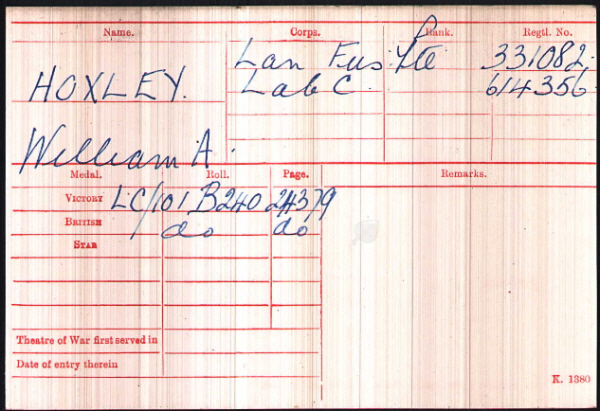 Name. Corps. Rank. Regtl. No.
HOXLEY. Lan Fus Pte 331082.
Lab C. 614356
William A.
Medal. Roll. Page. Remarks.
VICTORY LC/101 B240 24379
BRITISH do do
STAR
Theatre of War first served in
Date of entry therein
K. 1380